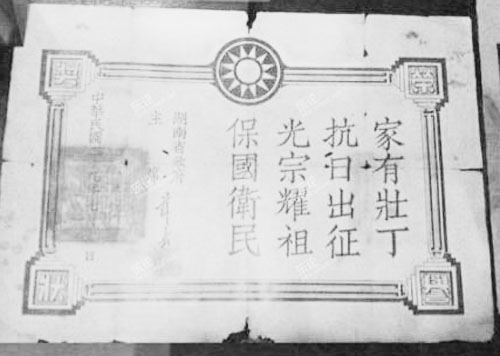 榮譽獎狀
家有壯丁
抗日出征
光宗耀祖
保國衛民
湖南省政府
主
中華民國 年七 日